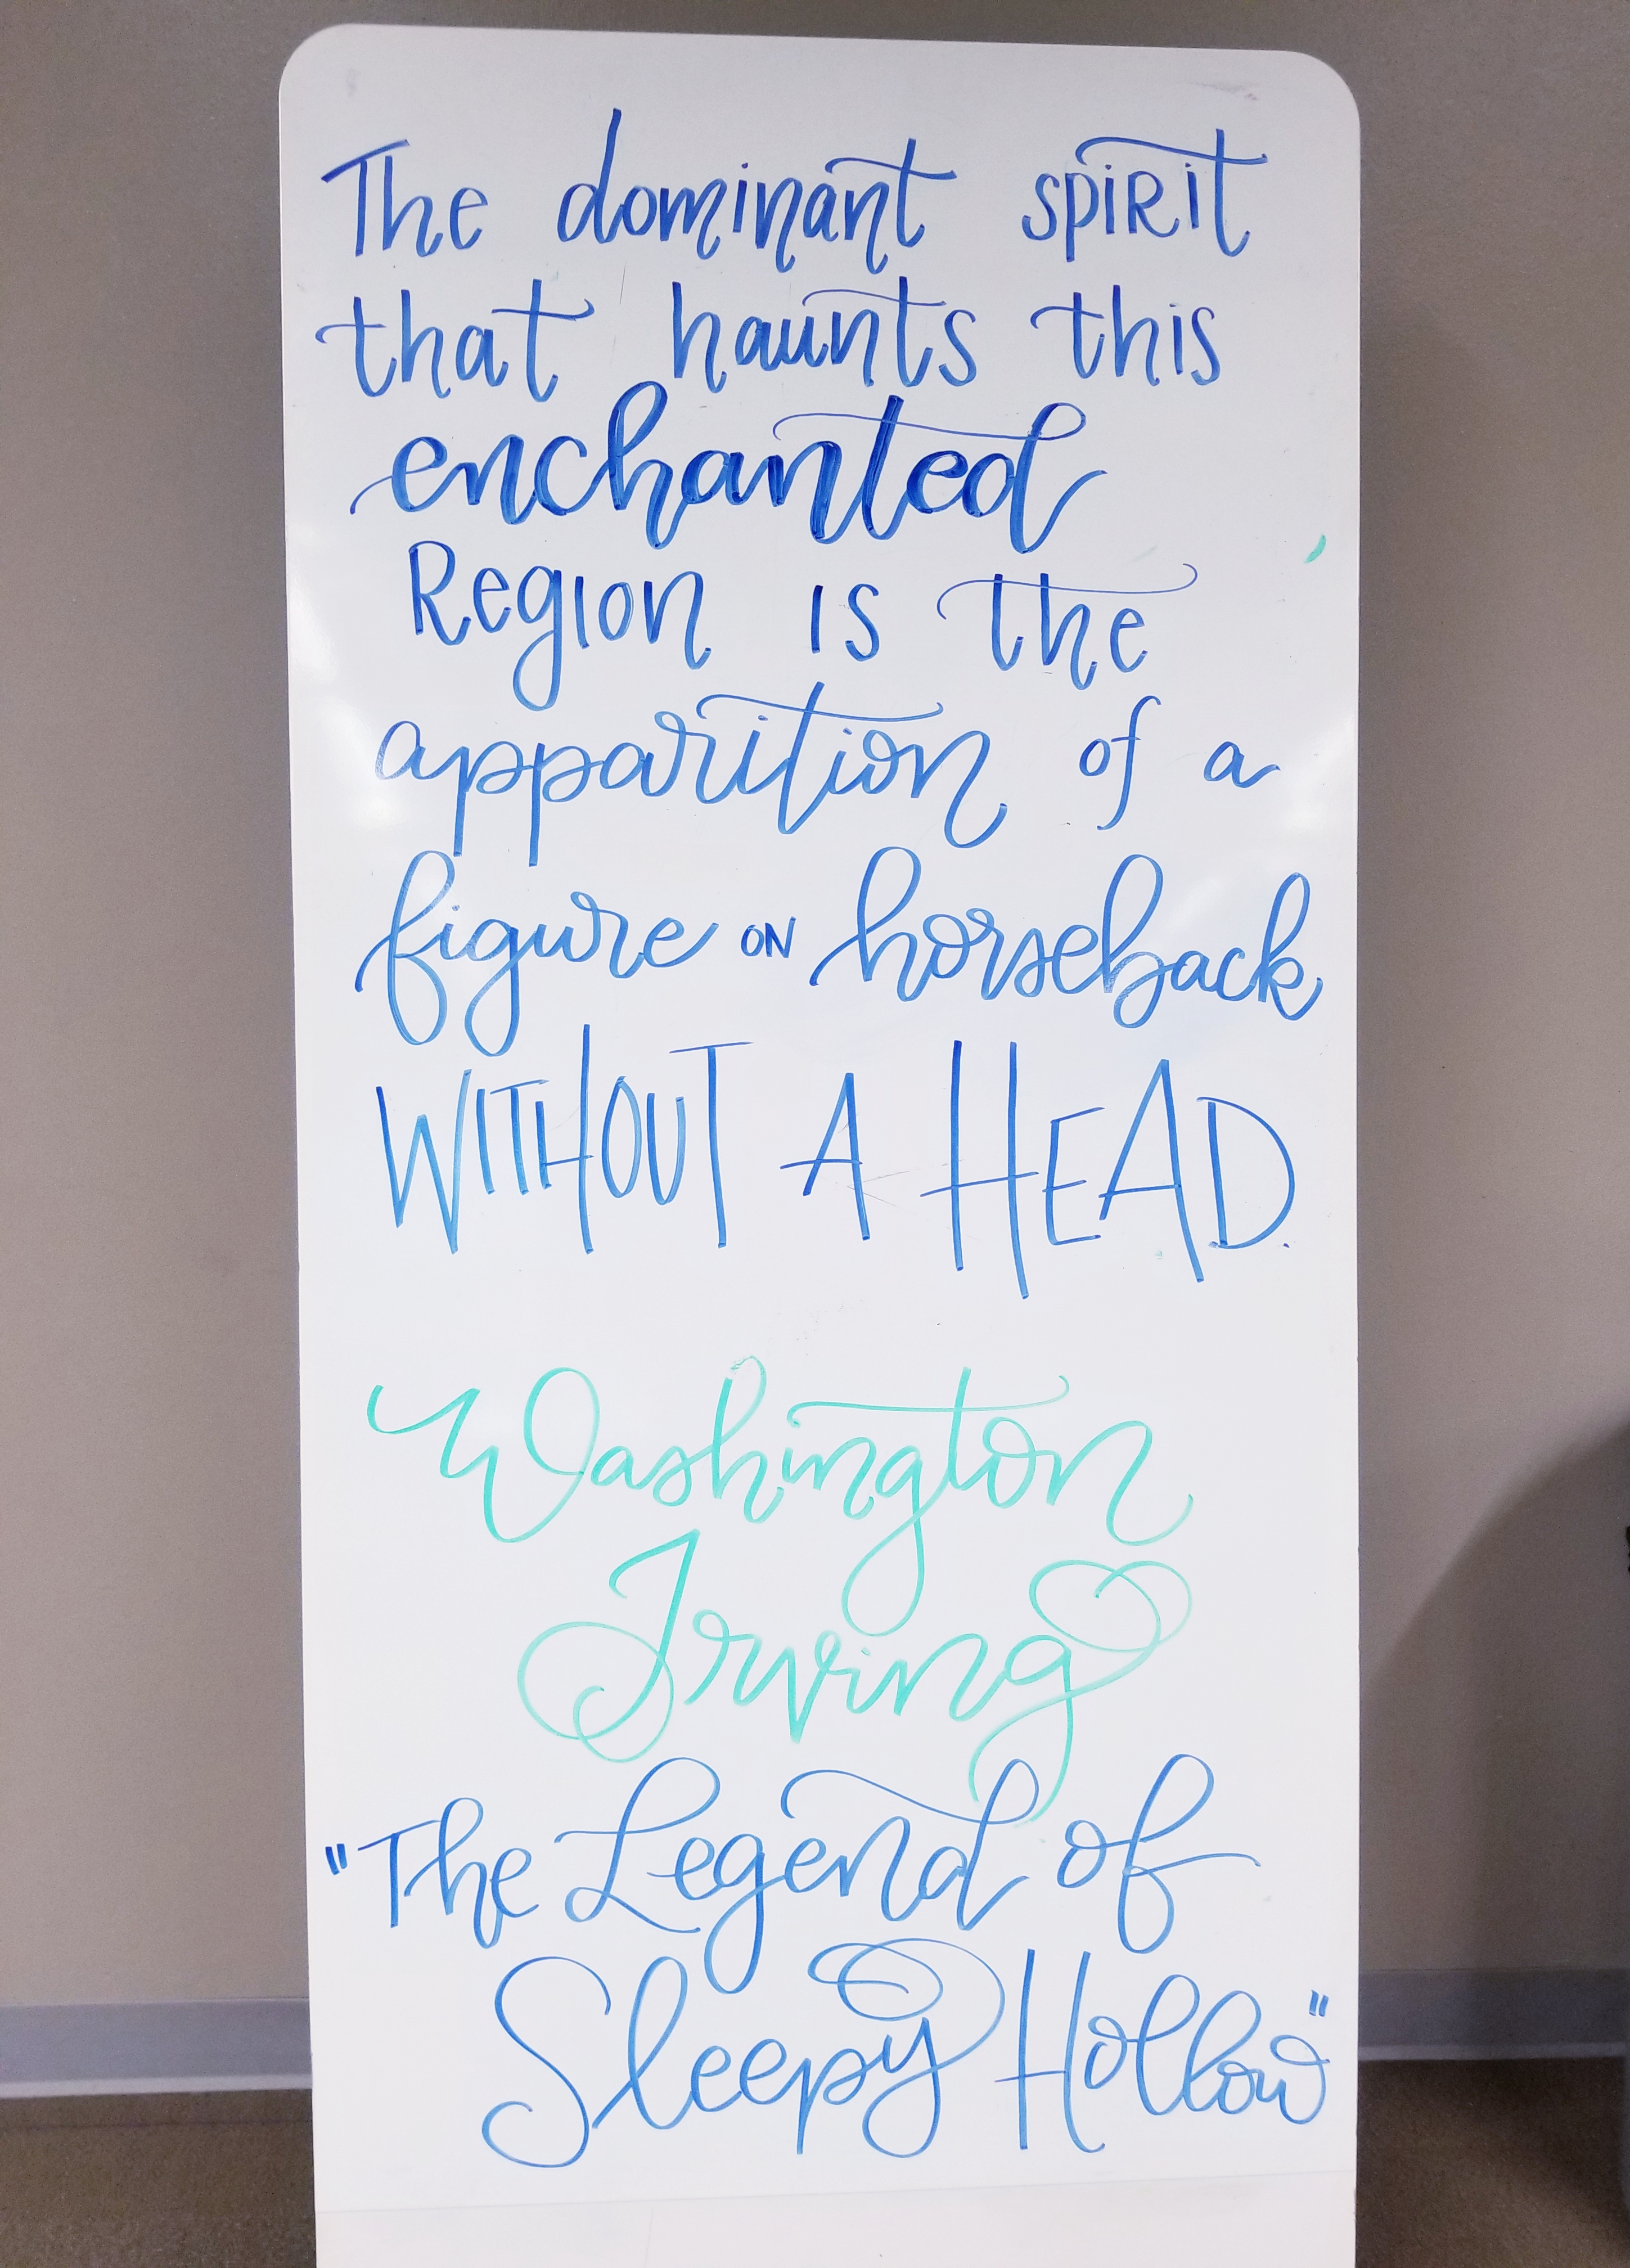 The dominant spirit
that haunts this
enchanted
Region is the
apparition of a
figure ON horseback
WITHOUT A HEAD.
Washington
Irving
"The Legend of
Sleepy Hollow"